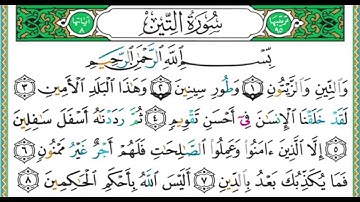 سُورَةُ التِّينِ
ترتيبها ٩٥
آياتها ٨
بِسْمِ اللَّهِ الرَّحْمَٰنِ الرَّحِيمِ
وَالتِّينِ وَالزَّيْتُونِ ١ وَطُورِ سِينِينَ ٢ وَهَٰذَا الْبَلَدِ الْأَمِينِ ٣
لَقَدْ خَلَقْنَا الْإِنسَٰنَ فِي أَحْسَنِ تَقْوِيمٍ ٤ ثُمَّ رَدَدْنَٰهُ أَسْفَلَ سَٰفِلِينَ
٥ إِلَّا الَّذِينَ ءَامَنُوا وَعَمِلُوا الصَّٰلِحَٰتِ فَلَهُمْ أَجْرٌ غَيْرُ مَمْنُونٍ ٦
فَمَا يُكَذِّبُكَ بَعْدُ بِالدِّينِ ٧ أَلَيْسَ اللَّهُ بِأَحْكَمِ الْحَٰكِمِينَ ٨